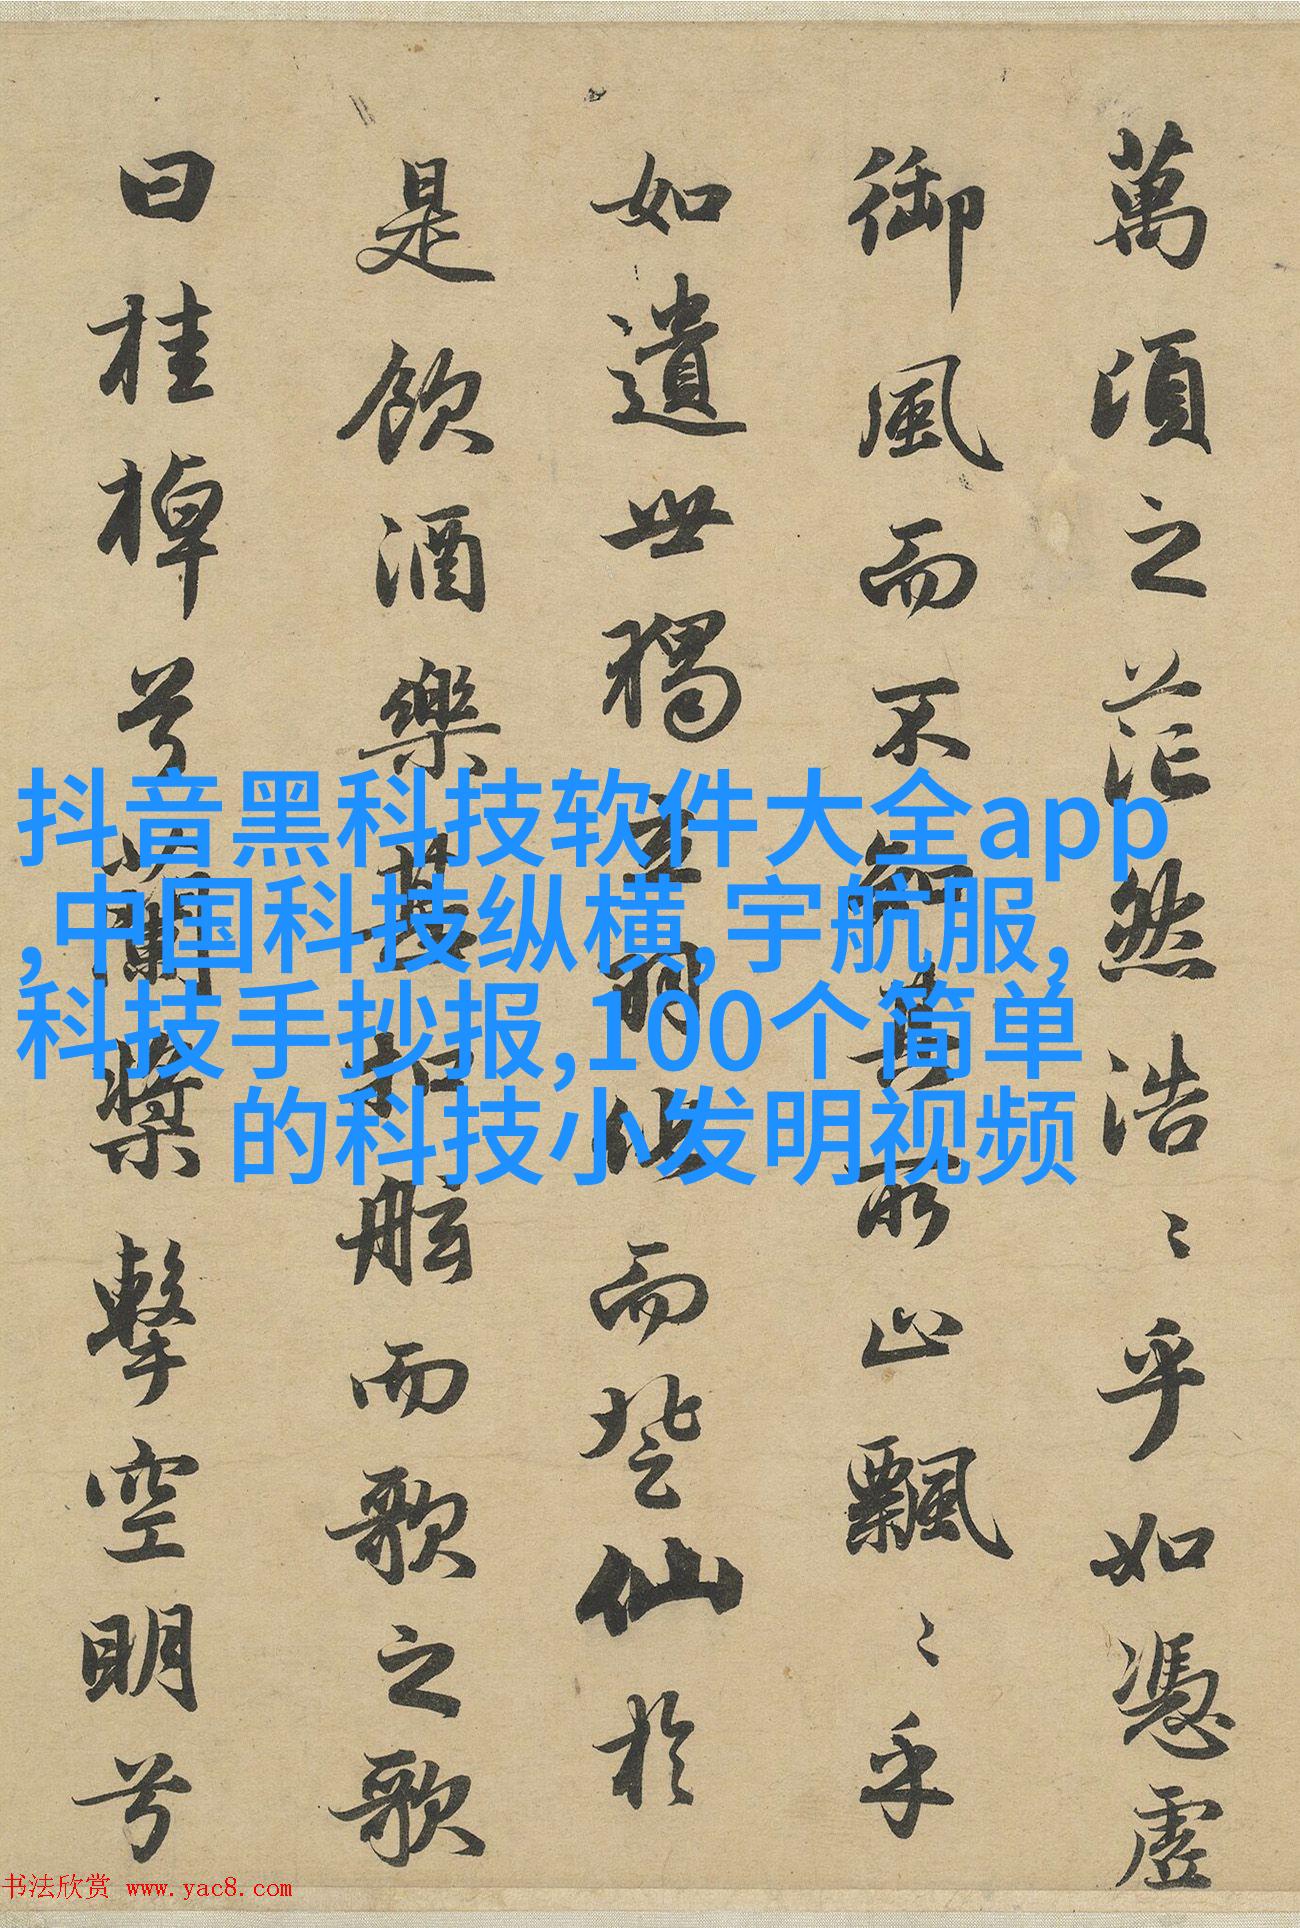 萬頃之茫然浩〻乎如憑虛
御風而不知其所止飄〻乎
如遺世獨立羽化而登仙於
是飲酒樂甚扣舷而歌之歌
曰桂棹兮蘭槳擊空明兮
抖音黑科技软件大全app
,中国科技纵横,宇航服,
科技手抄报,100个简单
的科技小发明视频
书法欣赏 www.yac8.com